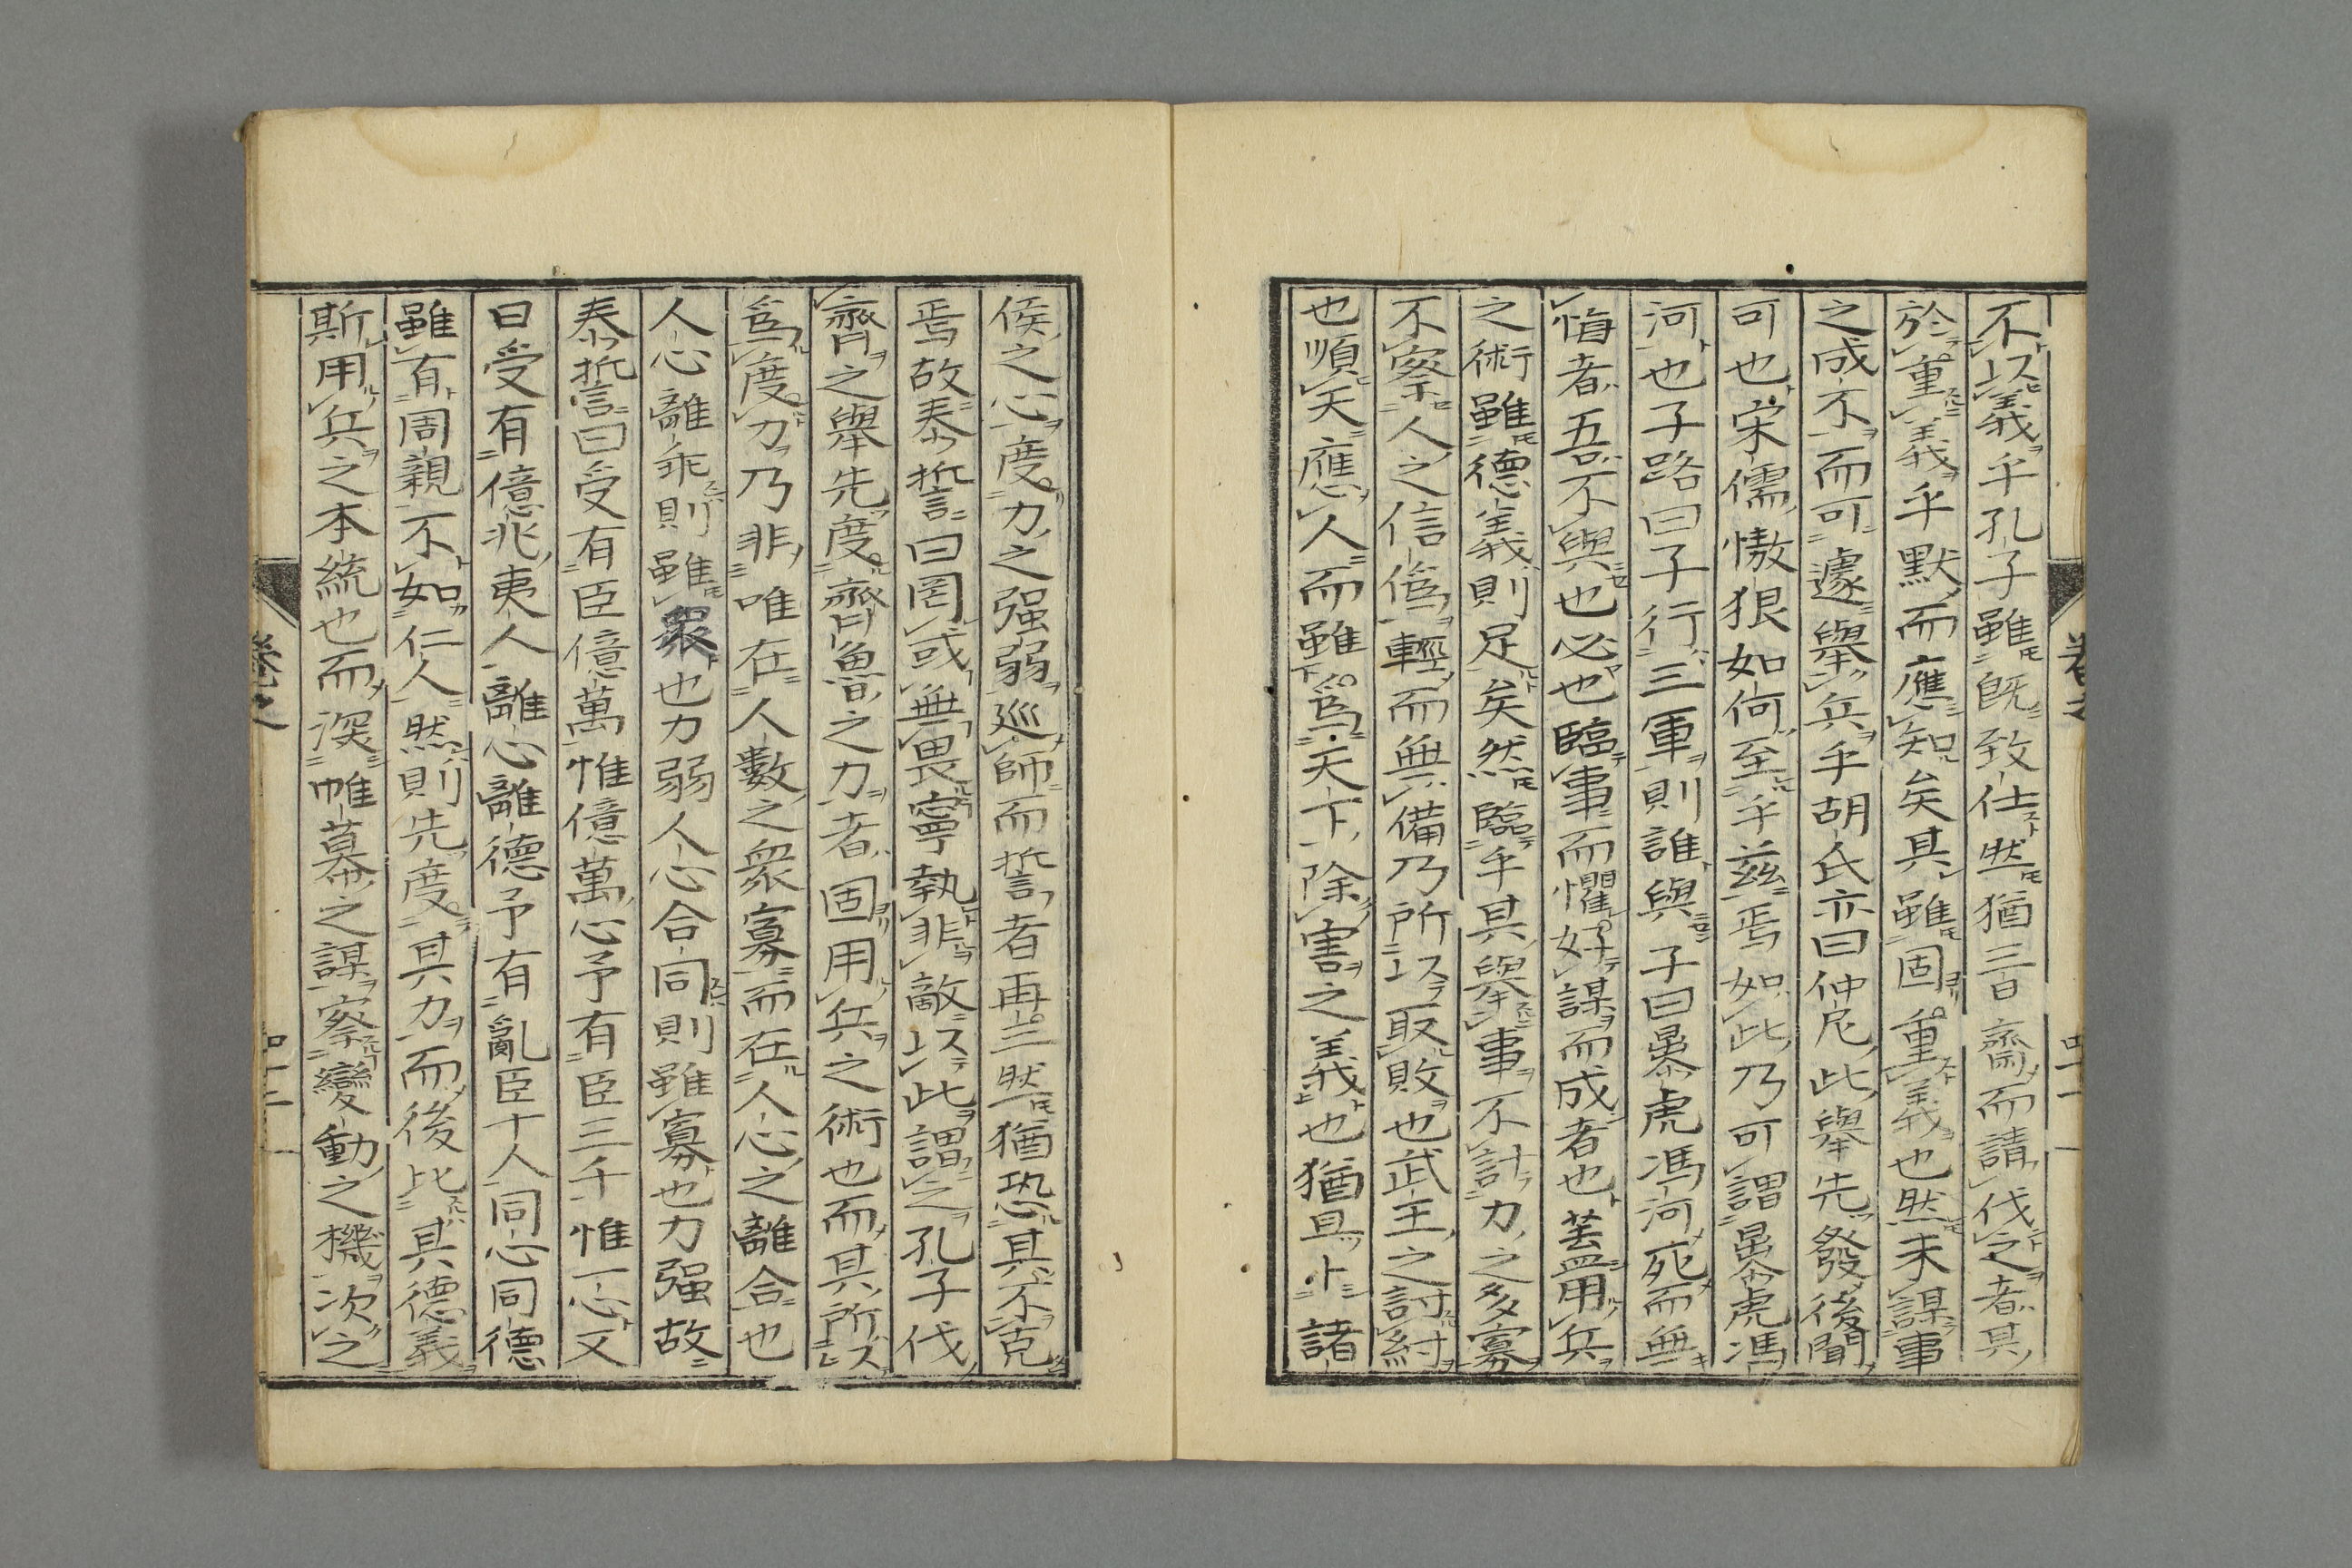 不以義乎孔子雖既致仕然猶三日齋而請伐之者其
於重義乎默而應知矣其雖固重義也然未謀事
之成不而可遽舉兵乎胡氏亦曰仲尼此舉先發後聞
可也宋儒傲狠如何至乎茲焉如此乃可謂暴虎馮
河也子路曰子行三軍則誰與子曰暴虎馮河死而無
悔者吾不與也必也臨事而懼好謀而成者也蓋用兵
之術雖德義則足矣然臨乎其舉事不計力之多寡
不察人之信偽輕而無備乃所以取敗也武王之討紂
也順天應人而雖爲天下除害之義也猶且卜諸
侯之心度力之强弱巡師而誓者再三然猶恐其不克
焉故泰誓曰罔或無畏寧執非敵以此謂之孔子伐
齊之舉先度齊魯之力者固用兵之術也而其所以
爲度力乃非唯在人數之衆寡而在人心之離合也
人心離乖則雖衆也力弱人心合同則雖寡也力强故
泰誓曰受有臣億萬惟億萬心予有臣三千惟一心又
曰受有億兆夷人離心離德予有亂臣十人同心同德
雖有周親不如仁人然則先度其力而後比其德義
斯用兵之本統也而深帷幕之謀察變動之機次之